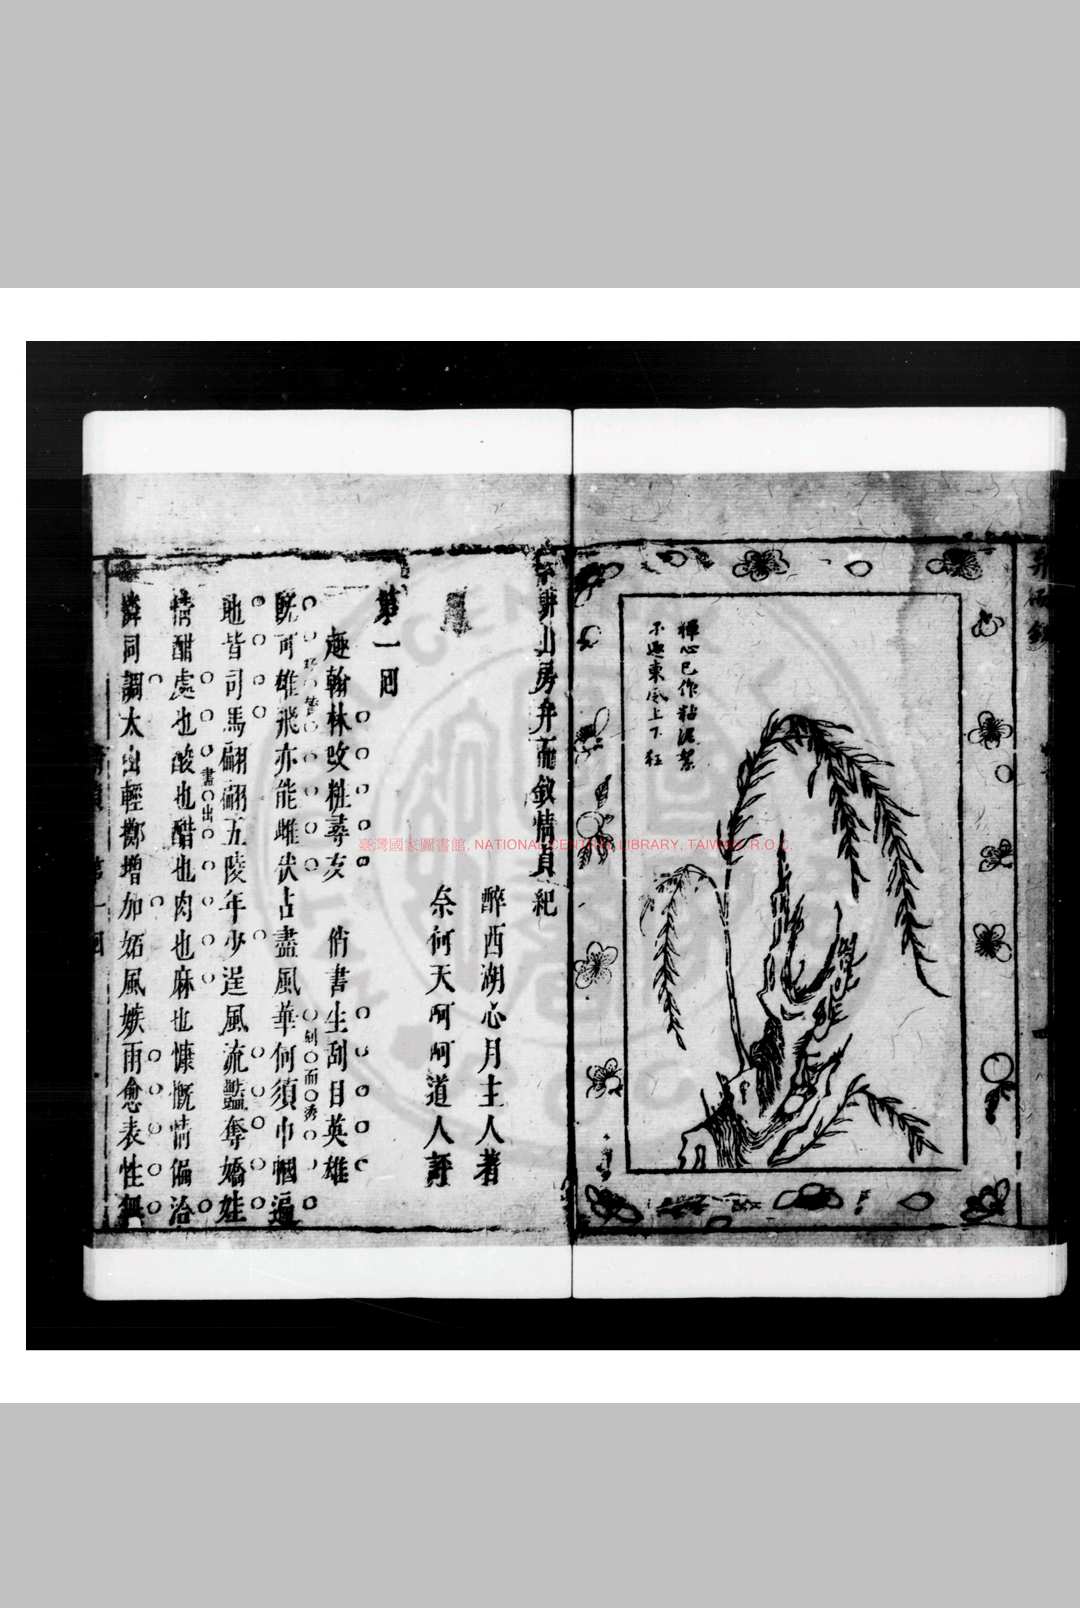 弁而釵
禪心已作粘泥絮
不逐東風上下狂
筆耕山房弁而釵情貞紀
醉西湖心月主人著
奈何天呵呵道人評
第一回
趣翰林改粧尋友　俏書生刮目英雄
既可雄飛亦能雌伏占盡風華何須巾幗遍
地皆司馬翩翩五陵年少逞風流豔奪嬌娃
情酣處也酸也醋也肉也麻也慷慨情偏洽
憐同調太山輕擲增加妬風嫉雨愈表性無
書出
刻而秀
情貞　第一回
臺灣國家圖書館, NATIONAL CENTRAL LIBRARY, TAIWAN, R.O.C.